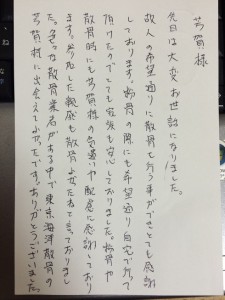 芳賀様
先日は大変お世話になりました。
故人の希望通りに散骨を行う事ができとても感謝
しております。粉骨の際にも希望通り自宅で行って
頂けたのでとても家族も安心しておりました。粉骨や
散骨時にも芳賀様の気遣いや配慮に感謝しており
ます。参加した親族も散骨よかったねと言っておりまし
た。色々な散骨業者がある中で東京海洋散骨の
芳賀様に出会えてよかったです。ありがとうございました。